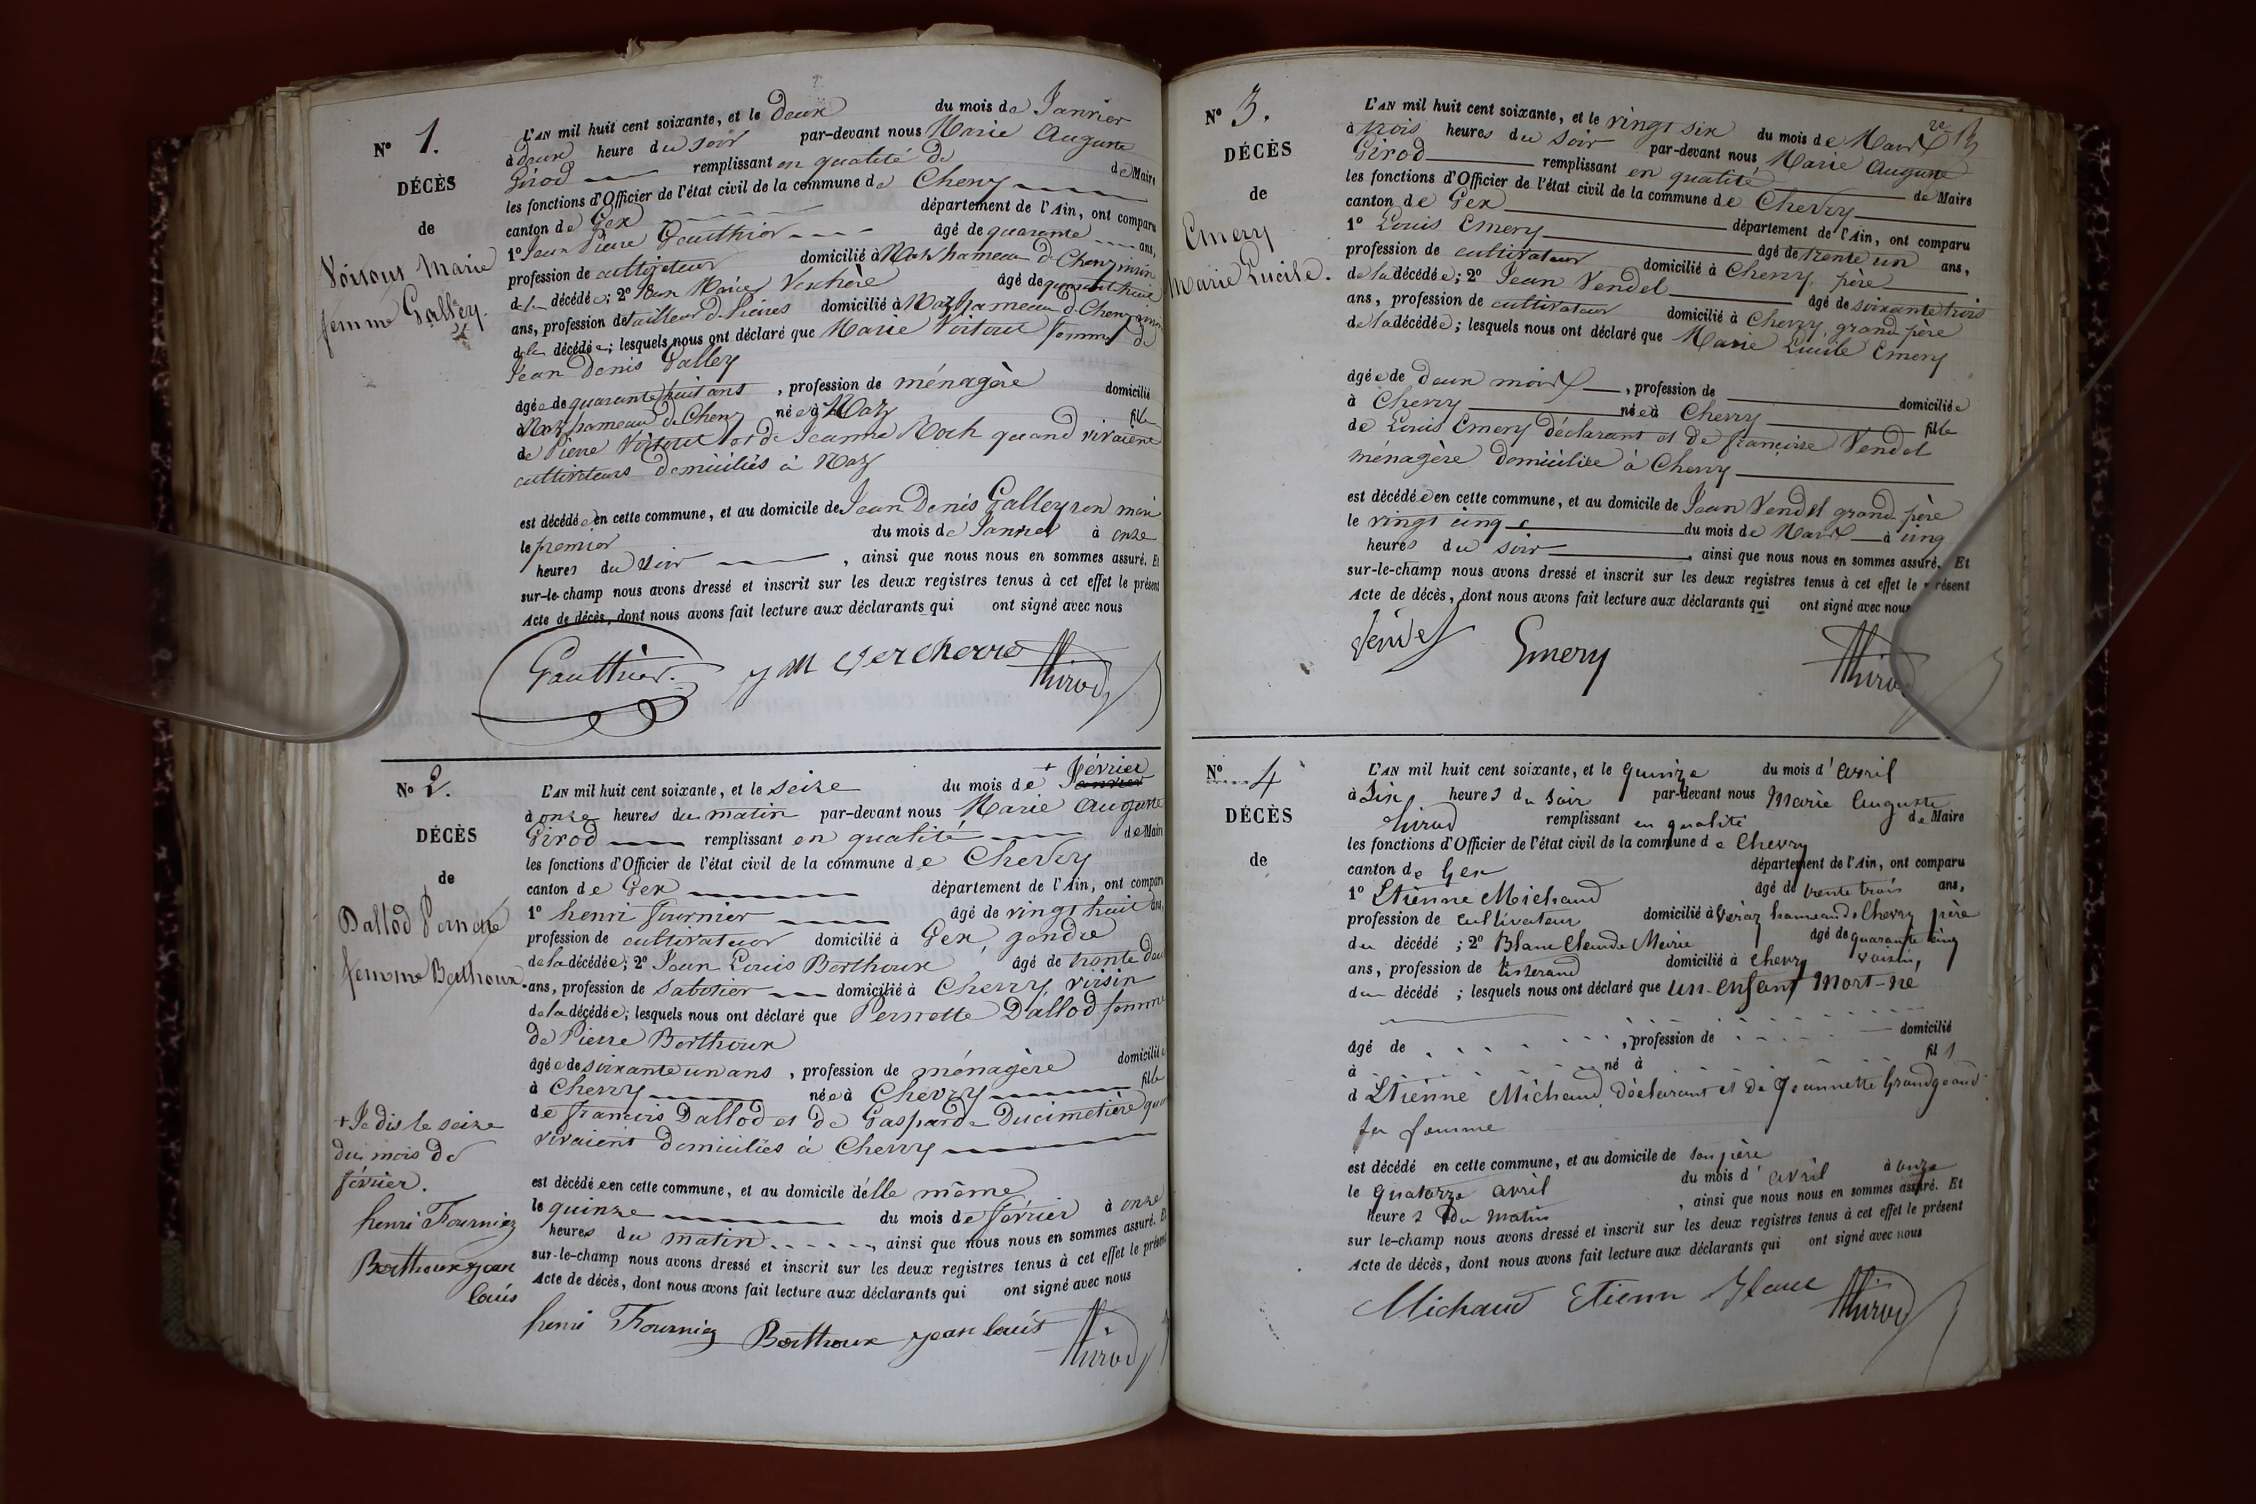 N° 1.
DÉCÈS
de
Voitout Marie
femme Galley.
L'AN mil huit cent soixante, et le deux du mois de Janvier
à deux heure du soir par-devant nous Marie Auguste
Girod remplissant en qualité de de Maire
les fonctions d'Officier de l'état civil de la commune de Chevry
canton de Gex département de l'Ain, ont comparu
1° Jean Pierre Gauthier âgé de quarante ans,
profession de cultivateur domicilié à Naz hameau de Chevry voisin
de la décédée; 2° Jean Marie Verchère âgé de quarante huit
ans, profession de tailleur de Pierres domicilié à Naz hameau de Chevry
de la décédée; lesquels nous ont déclaré que Marie Voitout femme de
Jean Denis Galley
âgée de quarante huit ans, profession de ménagère domicilié
à Naz hameau de Chevry née à Naz fille
de Pierre Voitout et de Jeanne Roch quand vivaient
cultivateurs domiciliés à Naz
est décédée en cette commune, et au domicile de Jean Denis Galley son mari
le premier du mois de Janvier à onze
heures du soir, ainsi que nous nous en sommes assuré. Et
sur-le-champ nous avons dressé et inscrit sur les deux registres tenus à cet effet le présent
Acte de décès, dont nous avons fait lecture aux déclarants qui ont signé avec nous
Gauthier. J M Vercherre Girod
N° 2.
DÉCÈS
de
Dallod Pernette
femme Berthoux.
L'AN mil huit cent soixante, et le seize du mois de + Février
à onze heures du matin par-devant nous Marie Auguste
Girod remplissant en qualité de Maire
les fonctions d'Officier de l'état civil de la commune de Chevry
canton de Gex département de l'Ain, ont comparu
1° henri fournier âgé de vingt huit ans,
profession de cultivateur domicilié à Gex, gendre
de la décédée; 2° Jean Louis Berthoux âgé de trente deux
ans, profession de sabotier domicilié à Chevry, voisin
de la décédée; lesquels nous ont déclaré que Pernette Dallod femme
de Pierre Berthoux
âgée de soixante un ans, profession de ménagère domiciliée
à Chevry née à Chevry fille
de francois Dallod et de Gasparde Ducimetière quand
vivaient domiciliés à Chevry
est décédée en cette commune, et au domicile d'elle même
le quinze du mois de février à onze
heures du matin, ainsi que nous nous en sommes assuré. Et
sur-le-champ nous avons dressé et inscrit sur les deux registres tenus à cet effet le présent
Acte de décès, dont nous avons fait lecture aux déclarants qui ont signé avec nous
henri Fournier Berthoux jean louis Girod
+ Je dis le seize
du mois de
février.
henri Fournier
Berthoux jean
louis
N° 3.
DÉCÈS
de
Emery
Marie Lucile.
L'AN mil huit cent soixante, et le vingt six du mois de Mars
à trois heures du soir par-devant nous Marie Auguste
Girod remplissant en qualité de Maire
les fonctions d'Officier de l'état civil de la commune de Chevry
canton de Gex département de l'Ain, ont comparu
1° Louis Emery âgé de trente un ans,
profession de cultivateur domicilié à Chevry, père
de la décédée; 2° Jean Vendel âgé de soixante trois
ans, profession de cultivateur domicilié à Chevry, grand père
de la décédée; lesquels nous ont déclaré que Marie Lucile Emery
âgée de deux mois, profession de domiciliée
à Chevry née à Chevry fille
de Louis Emery déclarant et de françoise Vendel
ménagère domiciliée à Chevry
est décédée en cette commune, et au domicile de Jean Vendel grand père
le vingt cinq du mois de Mars à cinq
heures du soir, ainsi que nous nous en sommes assuré. Et
sur-le-champ nous avons dressé et inscrit sur les deux registres tenus à cet effet le présent
Acte de décès, dont nous avons fait lecture aux déclarants qui ont signé avec nous
Emery Girod
N° 4
DÉCÈS
de
L'AN mil huit cent soixante, et le quinze du mois d'avril
à Six heures du soir par-devant nous Marie Auguste
Girod remplissant en qualité de Maire
les fonctions d'Officier de l'état civil de la commune de Chevry
canton de Gex département de l'Ain, ont comparu
1° Etienne Michaud âgé de trente trois ans,
profession de cultivateur domicilié à Véraz hameau de Chevry père
du décédé; 2° Blanc Claude Marie âgé de quarante cinq
ans, profession de tisserand domicilié à Chevry voisin,
du décédé; lesquels nous ont déclaré que un enfant Mort-né
âgé de, profession de domicilié
à né à fils
d'Etienne Michaud, déclarant et de Jeannette Grandgeand
sa femme
est décédé en cette commune, et au domicile de son père
le quatorze avril du mois d'avril à onze
heures du matin, ainsi que nous nous en sommes assuré. Et
sur le-champ nous avons dressé et inscrit sur les deux registres tenus à cet effet le présent
Acte de décès, dont nous avons fait lecture aux déclarants qui ont signé avec nous
Michaud Etienne Blanc Girod